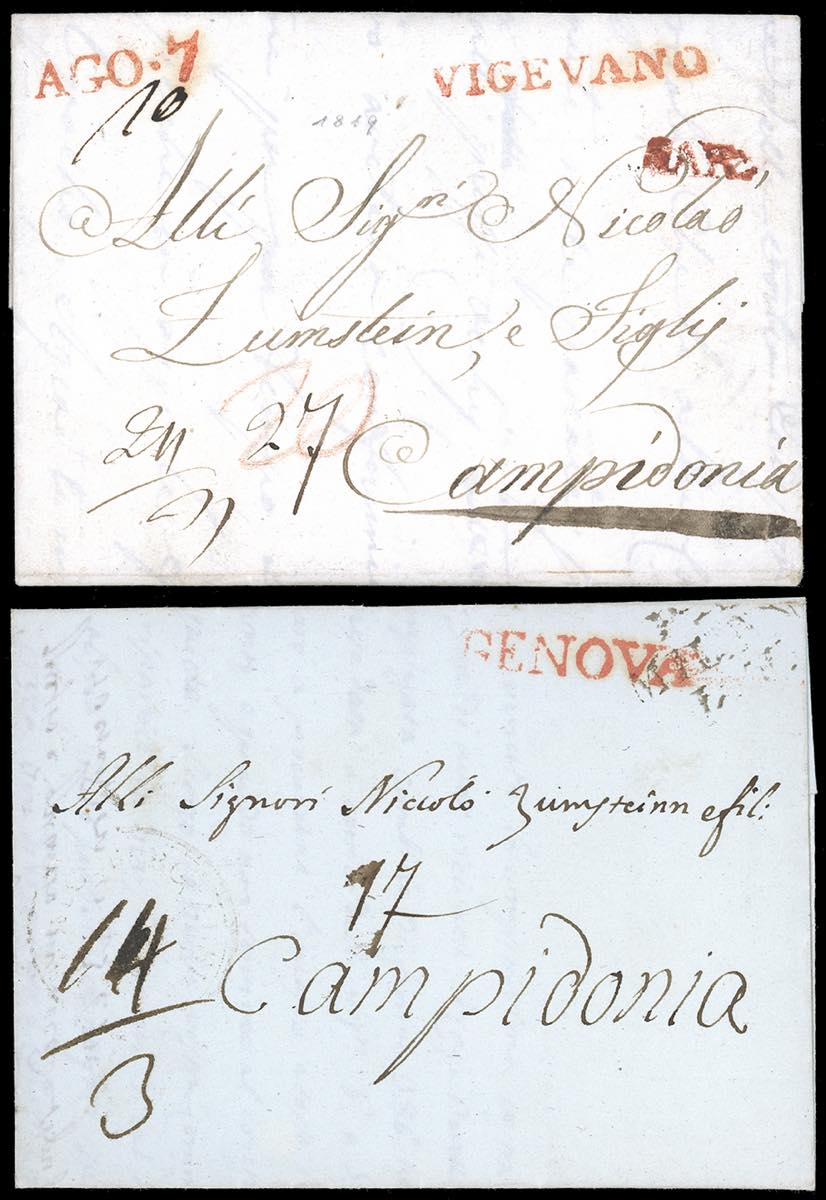 AGO. 7 VIGEVANO
10 1819
Alli Sigri Nicolao
Zumstein, e Figlij
24 20 27 Campidonia
GENOVA
Alli Signori Niccoló Zumsteinn e fil:
17
14 Campidonia
3